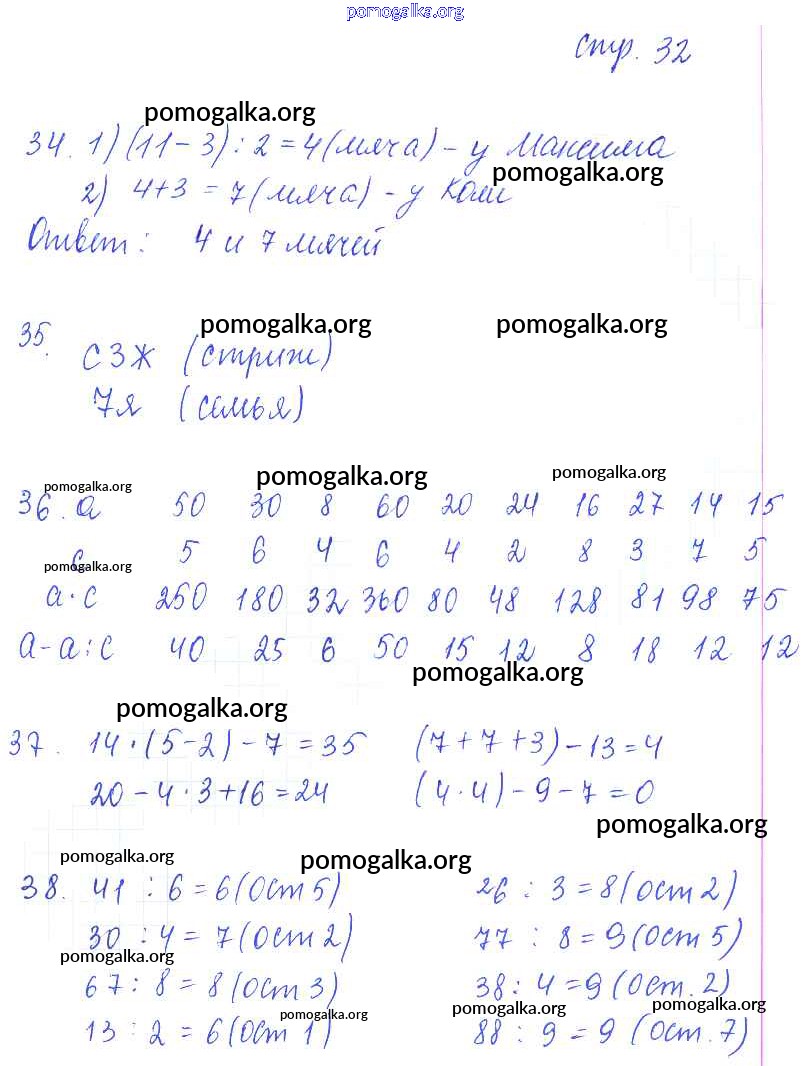 pomogalka.org
стр. 32
pomogalka.org
34. 1) (11-3) : 2 = 4 (мяча) - у Максима
pomogalka.org
2) 4+3 = 7 (мяча) - у Коли
Ответ: 4 и 7 мячей
pomogalka.org pomogalka.org
35.
С 3 Ж (стриж)
7я (семья)
pomogalka.org pomogalka.org pomogalka.org
36. а 50 30 8 60 20 24 16 27 14 15
с 5 6 4 6 4 2 8 3 7 5
pomogalka.org
а·с 250 180 32 360 80 48 128 81 98 75
а-а:с 40 25 6 50 15 12 8 18 12 12
pomogalka.org
pomogalka.org
37. 14·(5-2)-7=35 (7+7+3)-13=4
20-4·3+16=24 (4·4)-9-7=0
pomogalka.org
pomogalka.org pomogalka.org
38. 41 : 6 = 6 (Ост 5) 26 : 3 = 8 (Ост 2)
30 : 4 = 7 (Ост 2) 77 : 8 = 9 (Ост 5)
pomogalka.org
67 : 8 = 8 (Ост 3) 38 : 4 = 9 (Ост. 2)
pomogalka.org pomogalka.org pomogalka.org
13 : 2 = 6 (Ост 1) 88 : 9 = 9 (Ост. 7)